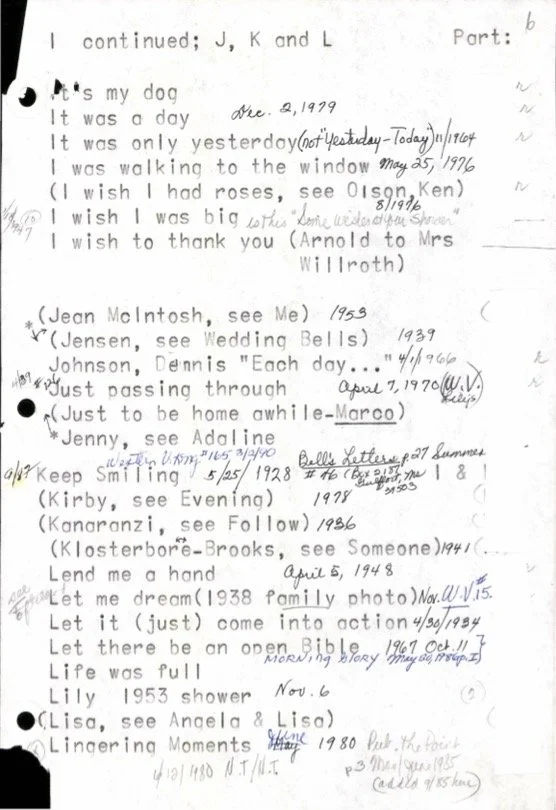 6
I continued; J, K and L Part:
It's my dog
It was a day Dec. 2, 1979
It was only yesterday (not "Yesterday-Today") 11/1964
I was walking to the window May 25, 1976
(I wish I had roses, see Olson, Ken)
8/1976
I wish I was big is this "Some Wishes at your Shower"
I wish to thank you (Arnold to Mrs
Willroth)
*(Jean McIntosh, see Me) 1953
(Jensen, see Wedding Bells) 1939
Johnson, Dennis "Each day..." 4/1/1966
Just passing through April 7, 1970 (W.V.
(Just to be home awhile-Marco)
*Jenny, see Adaline
Western Viking #165 3/2/90 Bell's Letters p. 27 Summer
Keep Smiling 5/25/1928 #46 (Box 2187 I & I
Gulfport, Ms
39503
(Kirby, see Evening) 1978
(Kanaranzi, see Follow) 1936
(Klosterbore-Brooks, see Someone) 1941 (...
Lend me a hand April 5, 1948
Let me dream (1938 family photo) Nov. W.V.#15.
Let it (just) come into action 4/30/1934
Let there be an open Bible 1967 Oct. 11
MORNING GLORY May 30, 1986 p. I)
Life was full
Lily 1953 shower Nov. 6
(Lisa, see Angela & Lisa)
Lingering Moments June May 1980 Pub. The Point
4/12/1980 N.T/N.T. p 3 May/June 1985
(added 9/85 here)